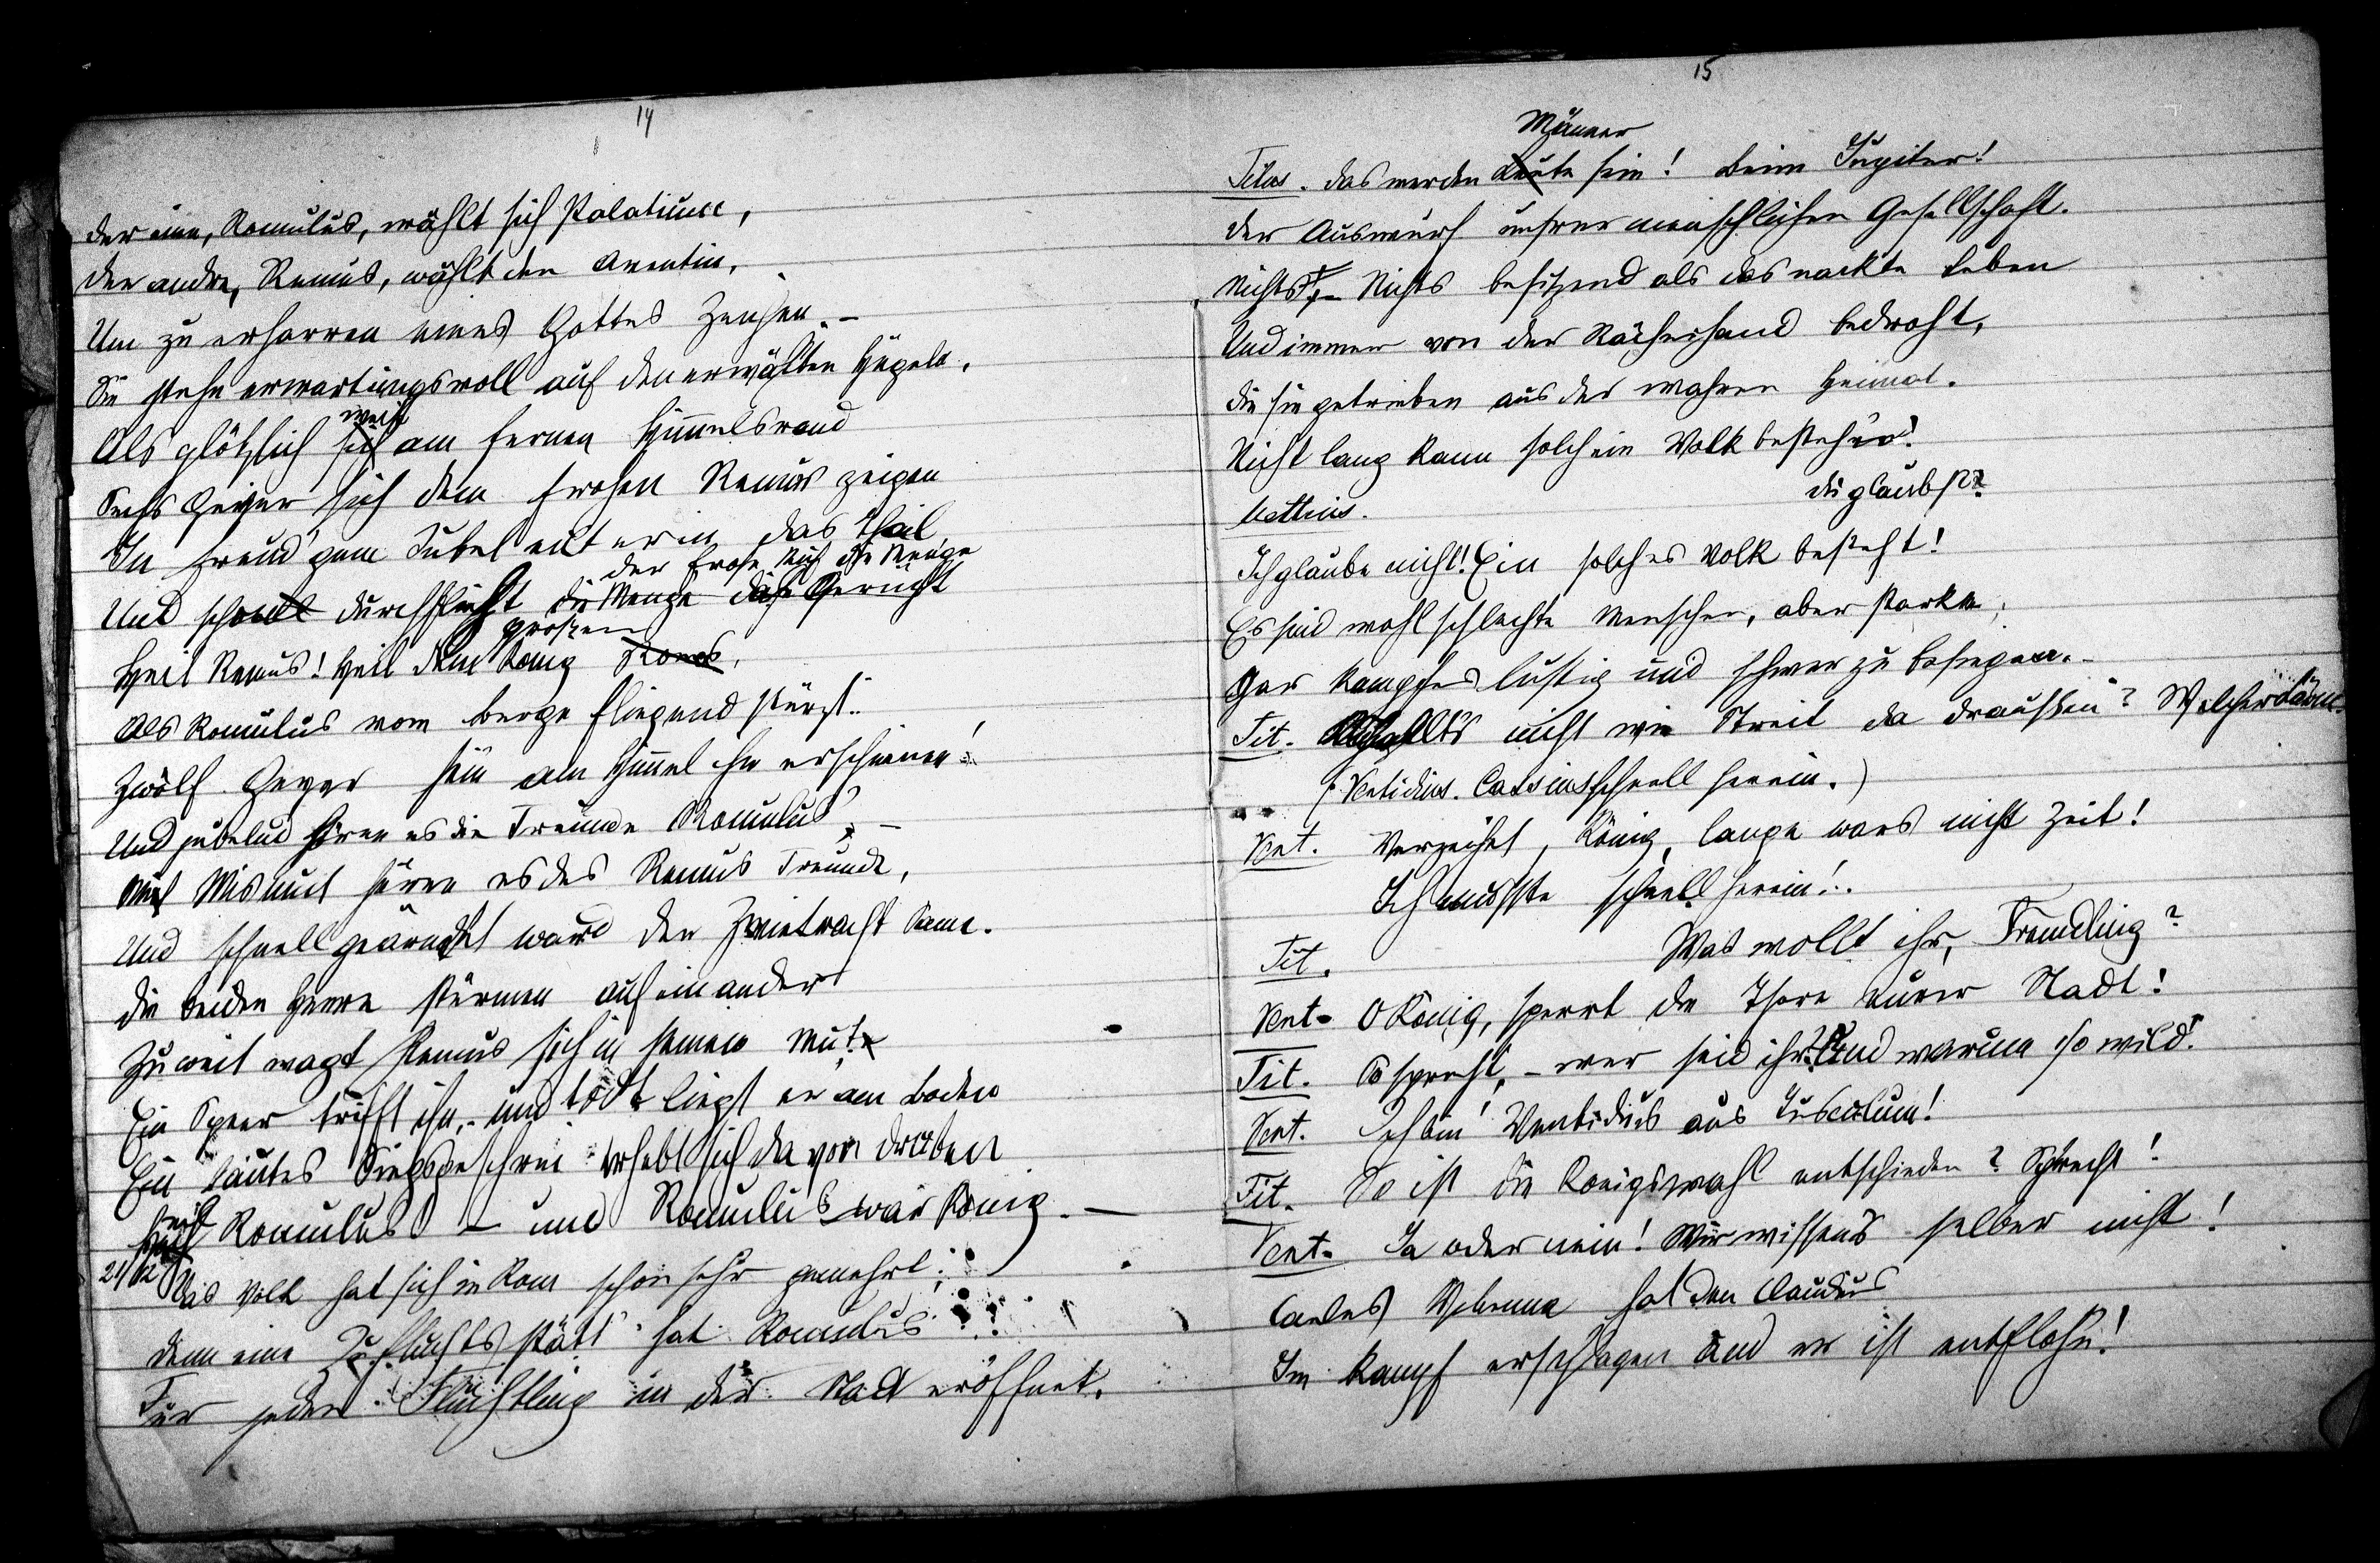 14
Der eine, Romulus, wählt sich Palatium,
Der andre, Remus, wählt den Aventin,
Um zu erharren eines Gottes Zeichen. –
Sie stehn erwartungsvoll auf den erwählten Hügeln,
weit
Als plötzlich sich am fernen Himmelsrand
Sechs Geyer sich dem frohen Remus zeigen
In freud'gem Jubel eilt er in das Thal
der Frohe durch die Menge
Und schnell durchfliegt die Menge das Gerücht
großen
Heil Remus! Heil dem König Roms,
Als Romulus vom Berge fliegend stürzt:
Zwölf Geyer sein am Himmel ihm erschienen!
Und jubelnd hören es die Freunde Romulus', –
Mit Mismut hören es des Remus Freunde,
Und schnell gesät ward der Zwietracht Same.
Die beiden Heere stürmen auf einander
Zu weit wagt Remus sich in seinem Mut.
Ein Speer trifft ihn, – und todt liegt er am Boden
Ein lautes Siegsgeschrei erhebt sich da von drüben
Heil
Heil Romulus! – und Romulus war König. –
21/12 Das Volk hat sich in Rom schon sehr gemehrt;
Denn eine Zufluchtsstätt' hat Romulus
Für jeden Flüchtling in der Stadt eröffnet.
15
Männer
Titus. Das werden Leute sein! Beim Jupiter!
Der Auswurf unsrer menschlichen Gesellschaft.
Nichts, – Nichts besitzend als das nackte Leben
Und immer von der Rächerhand bedroht,
Die sie getrieben aus der wahren Heimat.
Nicht lang kann solch ein Volk bestehn!
Du glaubst?
Mettius.
Ich glaube nicht! Ein solches Volk besteht!
Es sind wohl schlechte Menschen, aber starke,
Gar kampfeslustig und schwer zu besiegen. –
Tit. nicht wie Streit da draußen? Welcher Lärm.
(Ventidius. Cassius schnell herein.)
Vent. Verzeihet, König, lange wars nicht Zeit!
Ich musste schnell herein!
Tit. Was wollt ihr, Fremdling?
Vent. O König, sperrt die Thore eurer Stadt!
Tit. O sprecht, – wer seid ihr? Und warum so wild?
Vent. Ich bin Ventidius aus Tusculum!
Tit. So ist die Königswahl entschieden? Sprecht!
Vent. Ja oder nein! Wir wissens selber nicht!
hat den Claudius
Im Kampf erschlagen und er ist entflohn!